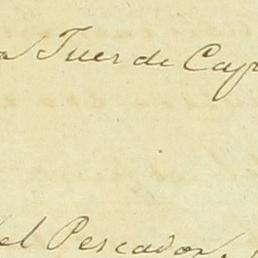 Tuer de Cap
el Pescador.